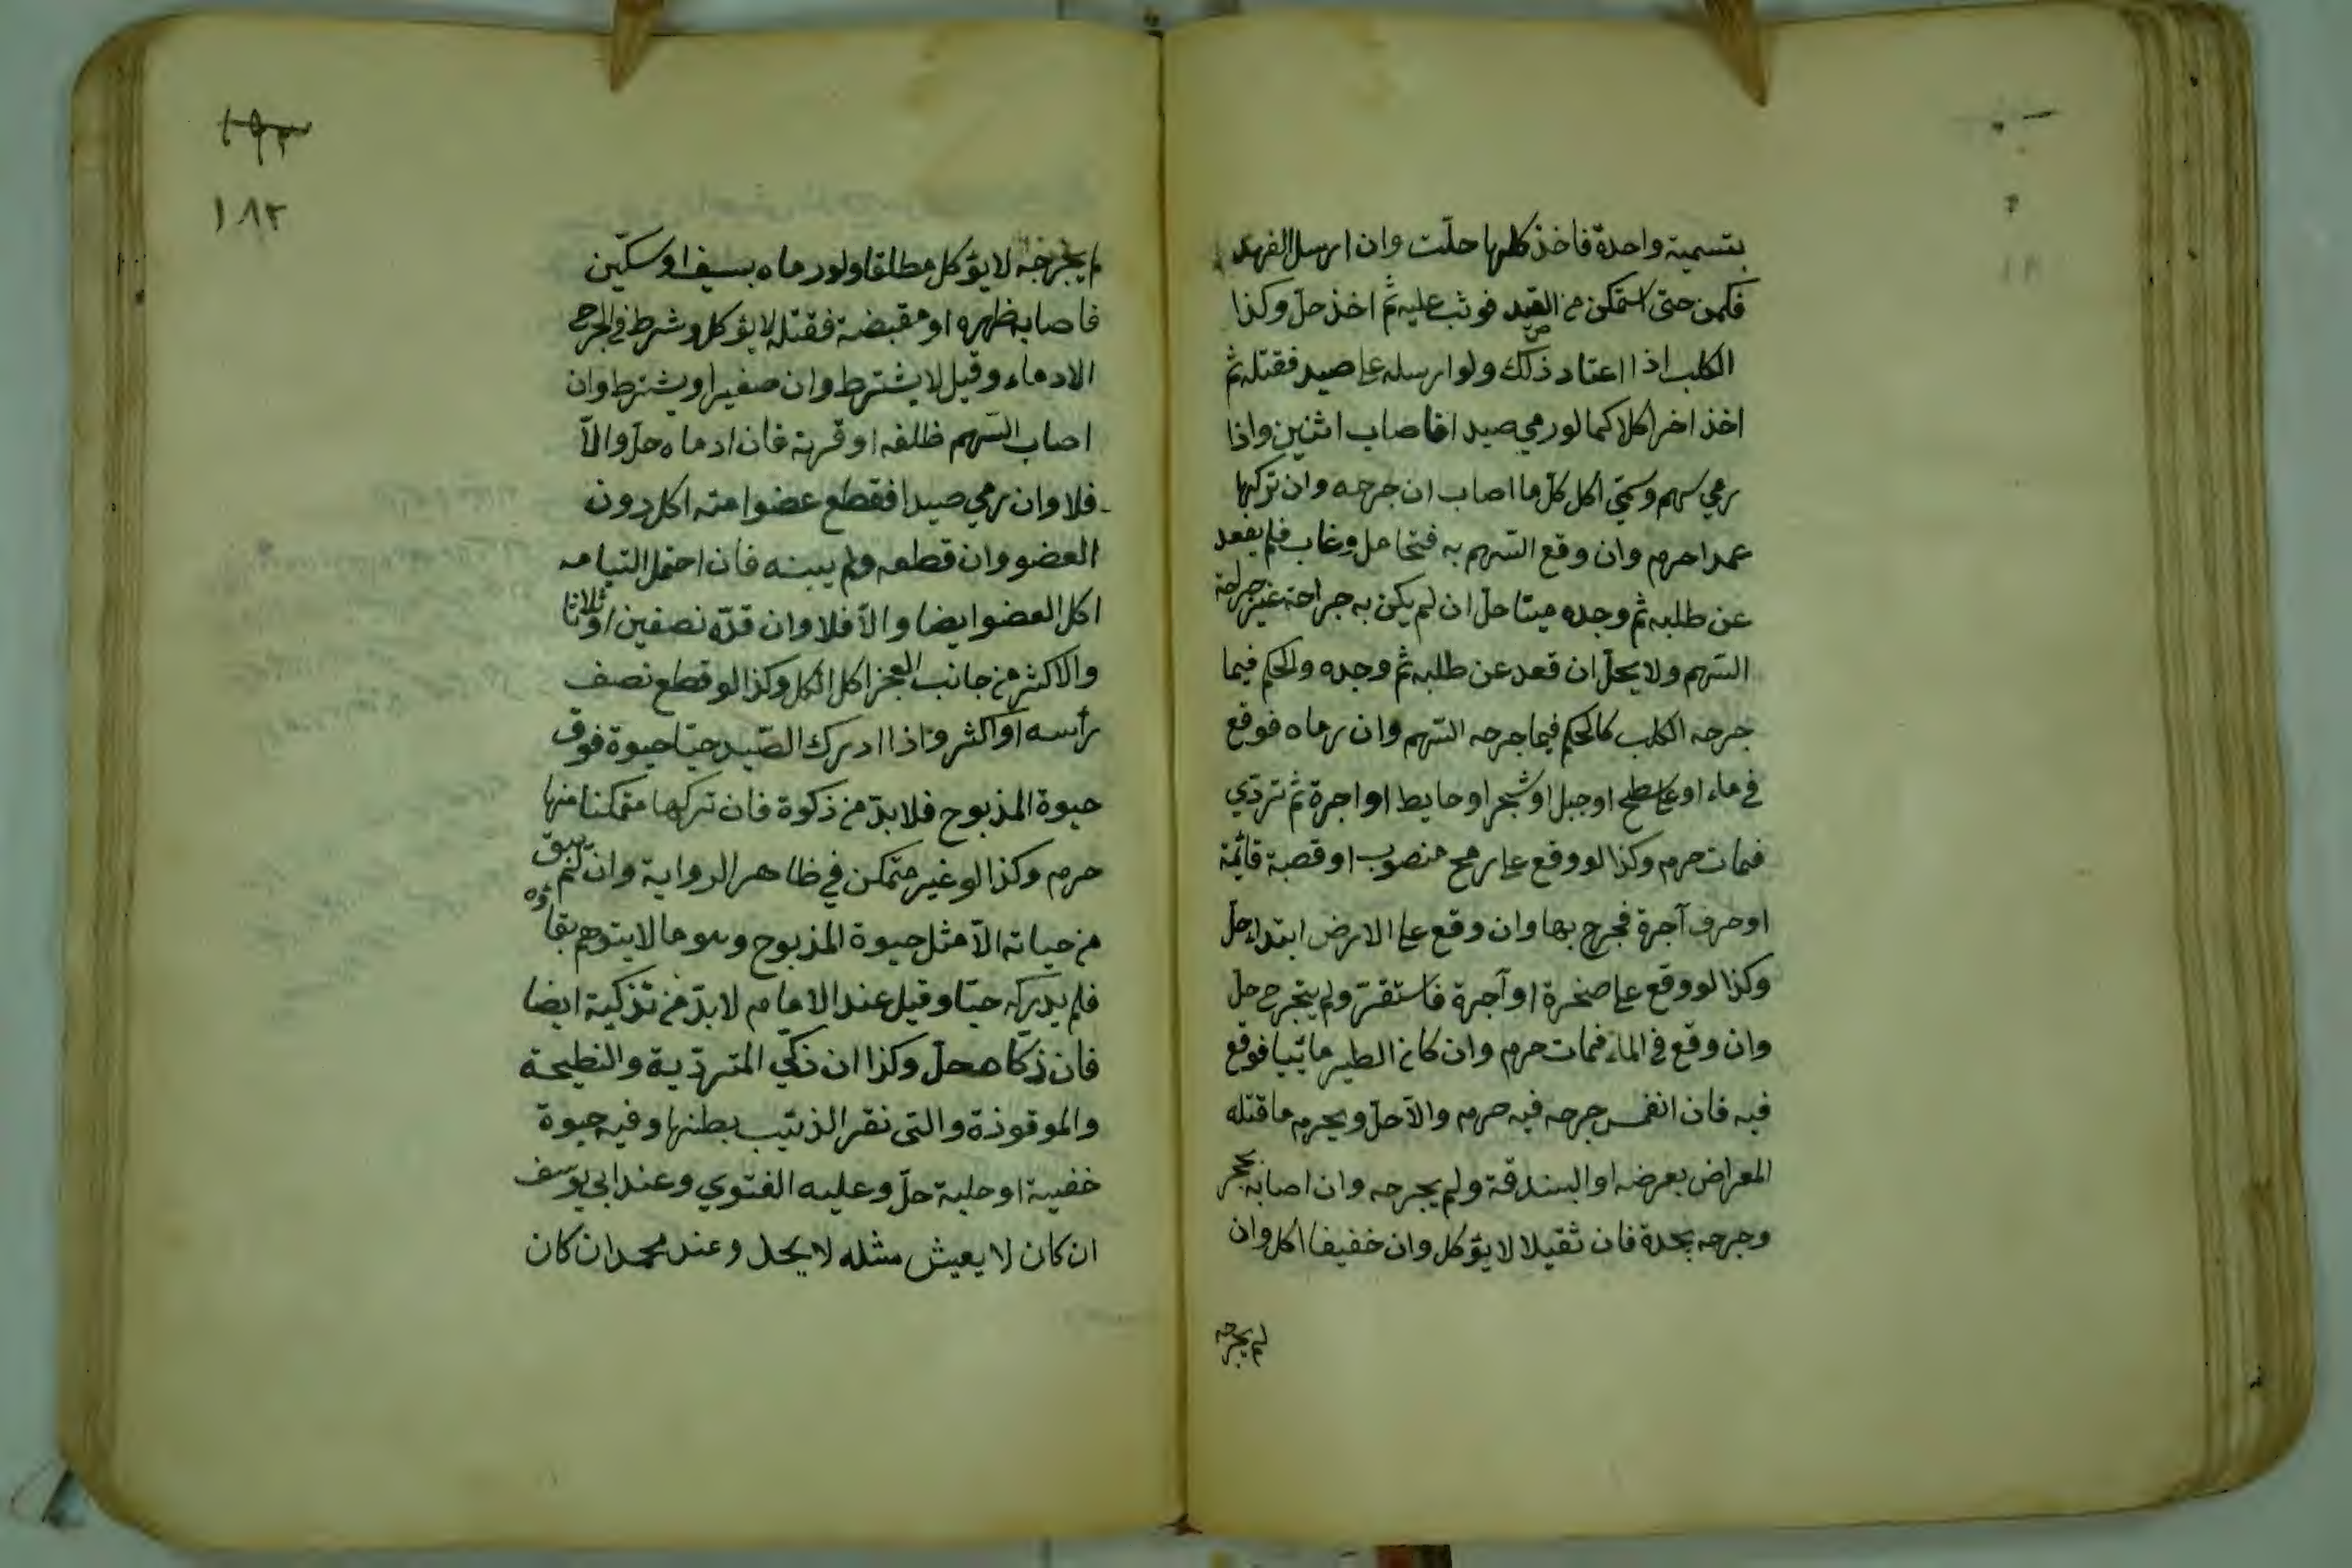 بتسمية واحدة فاخذ كلها حلّت وان ارسل الفهد
فكمن حتى استمكن من القيد فوثب عليه ثم اخذ حلّ وكذا
ص
الكلب اذا اعتاد ذلك ولو ارسله على صيد فقتله ثم
اخذ اخر اكلا كما لو رمي صيدا فاصاب اثنين واذا
رمي سهم وسمّى اكل كلّ ما اصاب ان جرحه وان تركها
عمدا حرم وان وقع السّهم به فتحامل وغاب فلم يقعد
عن طلبه ثم وجده ميتا حلّ ان لم يكن به جراحة غير جراحة
السّهم ولا يحلّ ان قعد عن طلبه ثم وجده والحكم فيما
جرحه الكلب كالحكم فيما جرحه السّهم وان رماه فوقع
في ماء او على سطح او جبل او شجر او حايط او اجرة ثم تردّي
فمات حرم وكذا لو وقع على رمح منصوب او قصبة قائمة
او حرف آجرة فجرح بها وان وقع على الارض ابتداء حلّ
وكذا لو وقع على صخرة او آجرة فاستقرّ ولم يتجرح حلّ
وان وقع في الماء فمات حرم وان كان الطير مائيا فوقع
فيه فان انغمس جرحه فيه حرم والّا حلّ ويحرم ما قتله
المعراض بعرضه او البندقة ولم يجرحه وان اصابه بحجر
وجرحه بحدة فان ثقيلا لا يؤكل وان خفيفا اكل وان
لم يجرحه
١٩٣
١٨٢
لم يجرحه لا يؤكل مطلقا ولو رماه بسيف او سكّين
فاصابه ظهره او مقبضة فقتله لا يؤكل وشرط في الجرح
الادماء وقيل لا يشترط وان صغيرا ويشترط وان
اصاب السّهم ظلفه او قرنة فان ادماه حلّ والّا
فلا وان رمي صيدا فقطع عضوا منه اكل دون
العضو وان قطعه ولم يبنه فان احتمل التيامه
اكل العضو ايضا والّا فلا وان قدّه نصفين او ثلاثا
والاكثر من جانب العجز اكل الكل وكذا لو قطع نصف
رأسه او اكثر واذا ادرك الصّيد حيّا حيوة فوق
حيوة المذبوح فلا بدّ من ذكوة فان تركها متمكنا منها
حرم وكذا لو غير متمكن في ظاهر الرواية وان لم يبق
من حياته الّا مثل حيوة المذبوح وهو ما لا يتوهم بقاؤه
فلم يدركه حيّا وقيل عند الامام لا بدّ من تذكية ايضا
فان ذكّاه حلّ وكذا ان ذكّي المتردّية والنطيحة
والموقوذة والتي نقر الذئيب بطنها وفيه حيوة
خفيية او جلية حلّ وعليه الفتوي وعند ابي يوسف
ان كان لا يعيش مثله لا يحل وعند محمد ان كان